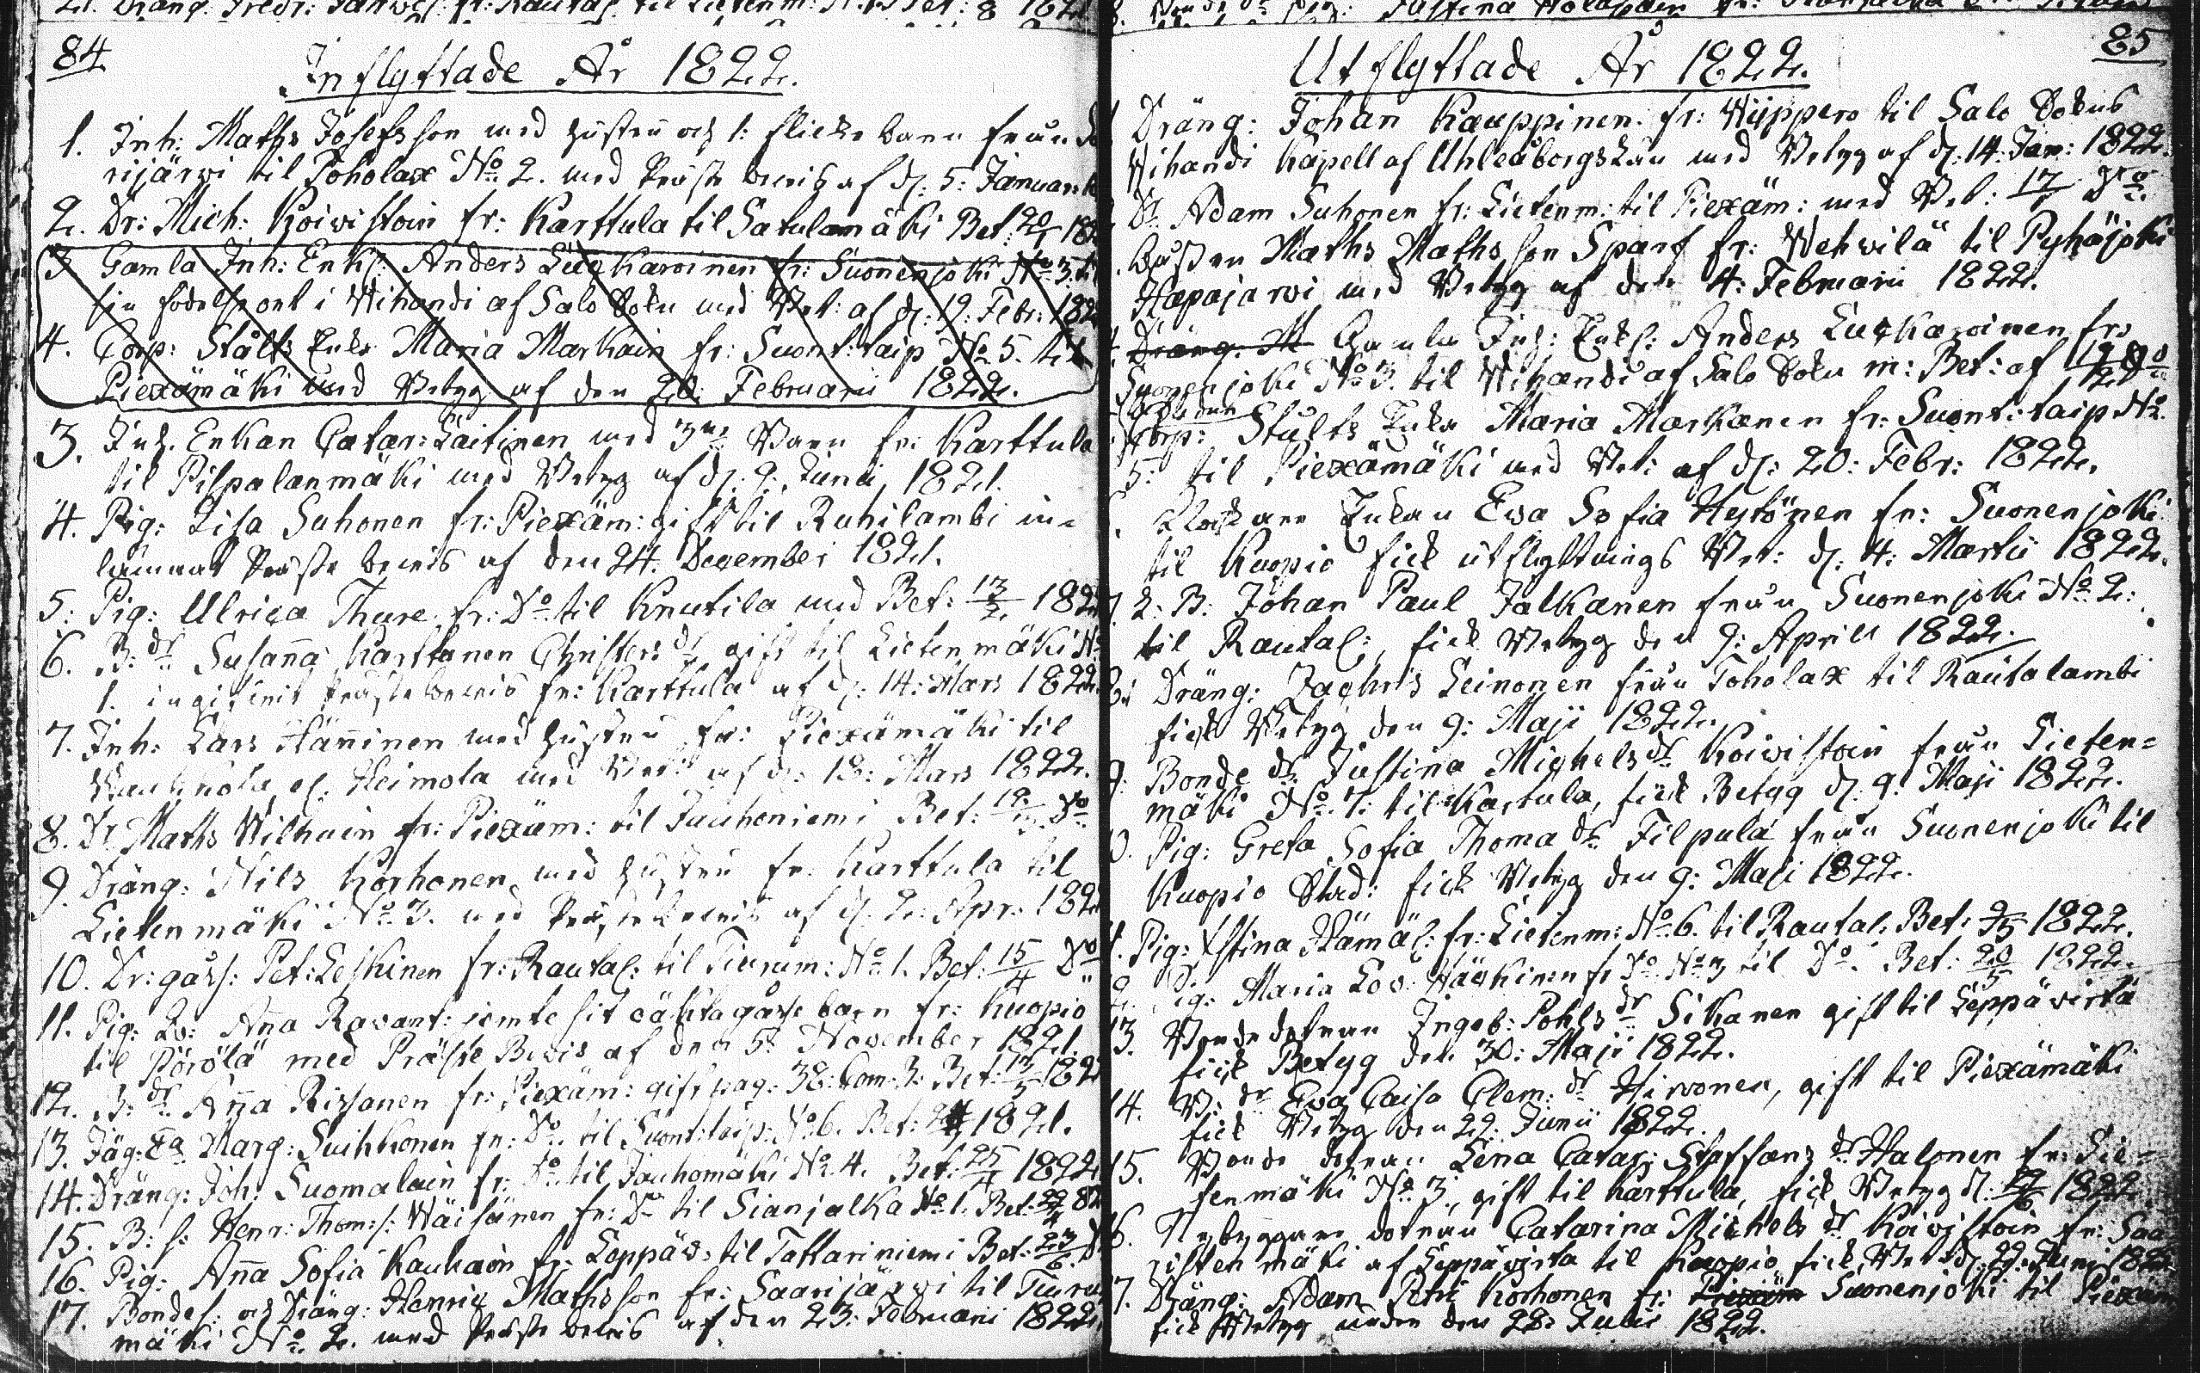 84
Inflyttade År 1822.
1. Inh: Maths Josefsson med hustru och 1: flicke barn från
rijärvi til Toholax No 2. med Präste bevis af d. 5: Januarii
2. Dr: Mich: Koiwistoin fr: Karttula til Satulamäki Bet: 182
3 Gamla Inh: Enkl: Anders Luckaroinen fr: Suonenjoki No 3. til
sin födelseort i Wihandi af Salo Sokn med Bet: af d: 19: Febr: 182
4. Corp: Stålts Enka Maria Markain fr: Suont:taip No 5. til
Piexämäki med Betyg af den 20. Februarii 1822.
3. Inh. Enkan Catar: Laitinen med 3ne Barn fr: Karttula
til Pilpalanmäki med Betyg af d. 9: Junii 1821.
4. Pig: Lisa Suhonen fr: Piexäm: gift til Ruhilambi in-
lämnat Präste bevis af den 24. December 1821.
5: Pig: Ulrica Thure fr: Do til Knutila med Bet: 13/2 182
6. B: dr Susanna Karttunen Christers dr gift til Lietenmäki No
1. ingifvit Präste bevis fr: Karttula af d: 14: Mars 1822.
7. Inh: Lars Hänninen med hustru fr: Piexämäki til
el. Heimola med Bet: af d: 18: Mars 1822.
8. Dr. Maths Wilhuin fr: Piexäm: til Jauheniemi Bet: Do
9. Dräng: Nils Korhonen med hustru fr: Karttula til
Lietenmäki No 3. med Präste bevis af d. 2: Apr: 182
10. Dr: gåss: Pet: Leskinen fr: Rautal: til Tiurum: No 1. Bet: 15/4 Do
11. Pig: Anna Ravant: jemte sit oäkta gåsse barn fr: Kuopio
til Pörölä med Präste Bevis af den 5: November 1821.
12. B: dr Anna Rissanen fr: Piexäm: gift pag: 38: Tom: 3: Bet: 182
13. Jäg: Ea Marg: Suihkonen fr: Do til Suont:taip: No 6. Bet: 1821.
14. Dräng: Joh: Suomalain fr: Do til Jauhomäki No 4. Bet: 25/4 1822
15. B: s: Henr: Thom: s: Wäisänen fr: Do til Sianjalka No 1. Bet: 82
16. Pig: Anna Sofia Kauhain fr: Leppäw: til Tattariniemi Bet: 23/6
17. Bondes: och Dräng: Henric Mathsson fr: Saarijärwi til
mäki No 2. med Präste bevis af den 23: Februarii 1822.
85
Utflyttade År 1822.
Dräng: Johan Kauppinen fr: Wiippero til Salo Sokns
Wihandi Kapell af Uhleåborgs Län med Betyg af d: 14: Jan: 1822.
Dr Adam Suhonen fr: Lietenm: til Piexäm: med Bet: Do
Maths Mathsson Sparf fr: Wehwilä til Pyhäjoki
Hapajarwi med Betyg af den 4: Februarii 1822.
Gamla Inh: Enkl: Anders Luckaroinen fr:
Suonenjoki No 3. til Wihandi af Salo Sokn m: Bet: af
Corp: Stålts Enka Maria Markanen fr: Suont:taip No
5: til Piexämäki med Bet: af d: 20: Febr: 1822.
Enkan Ewa Sofia Hytönen fr: Suonenjoki
til Kuopio fick utflyttnings Bet: d. 4: Martii 1822.
Johan Paul Jalkanen från Suonenjoki No 2:
til Rautal:, fick Betyg den 9: April 1822.
8: Dräng: Zachris Leinonen från Toholax til Rautalambi
fick Betyg den 9: Maji 1822.
9: Bonde dr Justina Michelsdr Koiwistoin från Lieten=
mäki No 7: til Kartula, fick Betyg d. 9. Maji 1822.
Pig: Greta Sofia Thoma dr Filpula från Suonenjoki til
Kuopio Stad: fick Betyg den 9: Maji 1822.
Pig: Stina Hämäl: fr: Lietenm: No 6. til Rautal. Bet. 1822.
Pig: Maria Lov: fr Do No 3 til Do Bet: 20/5 1822.
13. Bondedotran Ingeb: Pohls dr Sikanen gift til Leppäwirta
fick Betyg den 30: Maji 1822.
14. B: dr Ewa Caisa Clem: dr Hirvonen, gift til Piexämäki
fick Betyg den 22: Junii 1822.
15. Bonde dotran Lena Catar: Staffans dr Halonen fr: Lie-
tenmäki No 3, gift til Karttula, fick Betyg d: 1822.
16. Nybyggare dotran Catarina Michels dr Koiwistoin fr: Saa
mäki af Leppäwirta til Kuopio fick Bet: d: 22: Junii 1822.
17. Dräng: Adam Petri Korhonen fr: Suonenjoki til Piexäm
fick Betyg under den 28: Julii 1822.